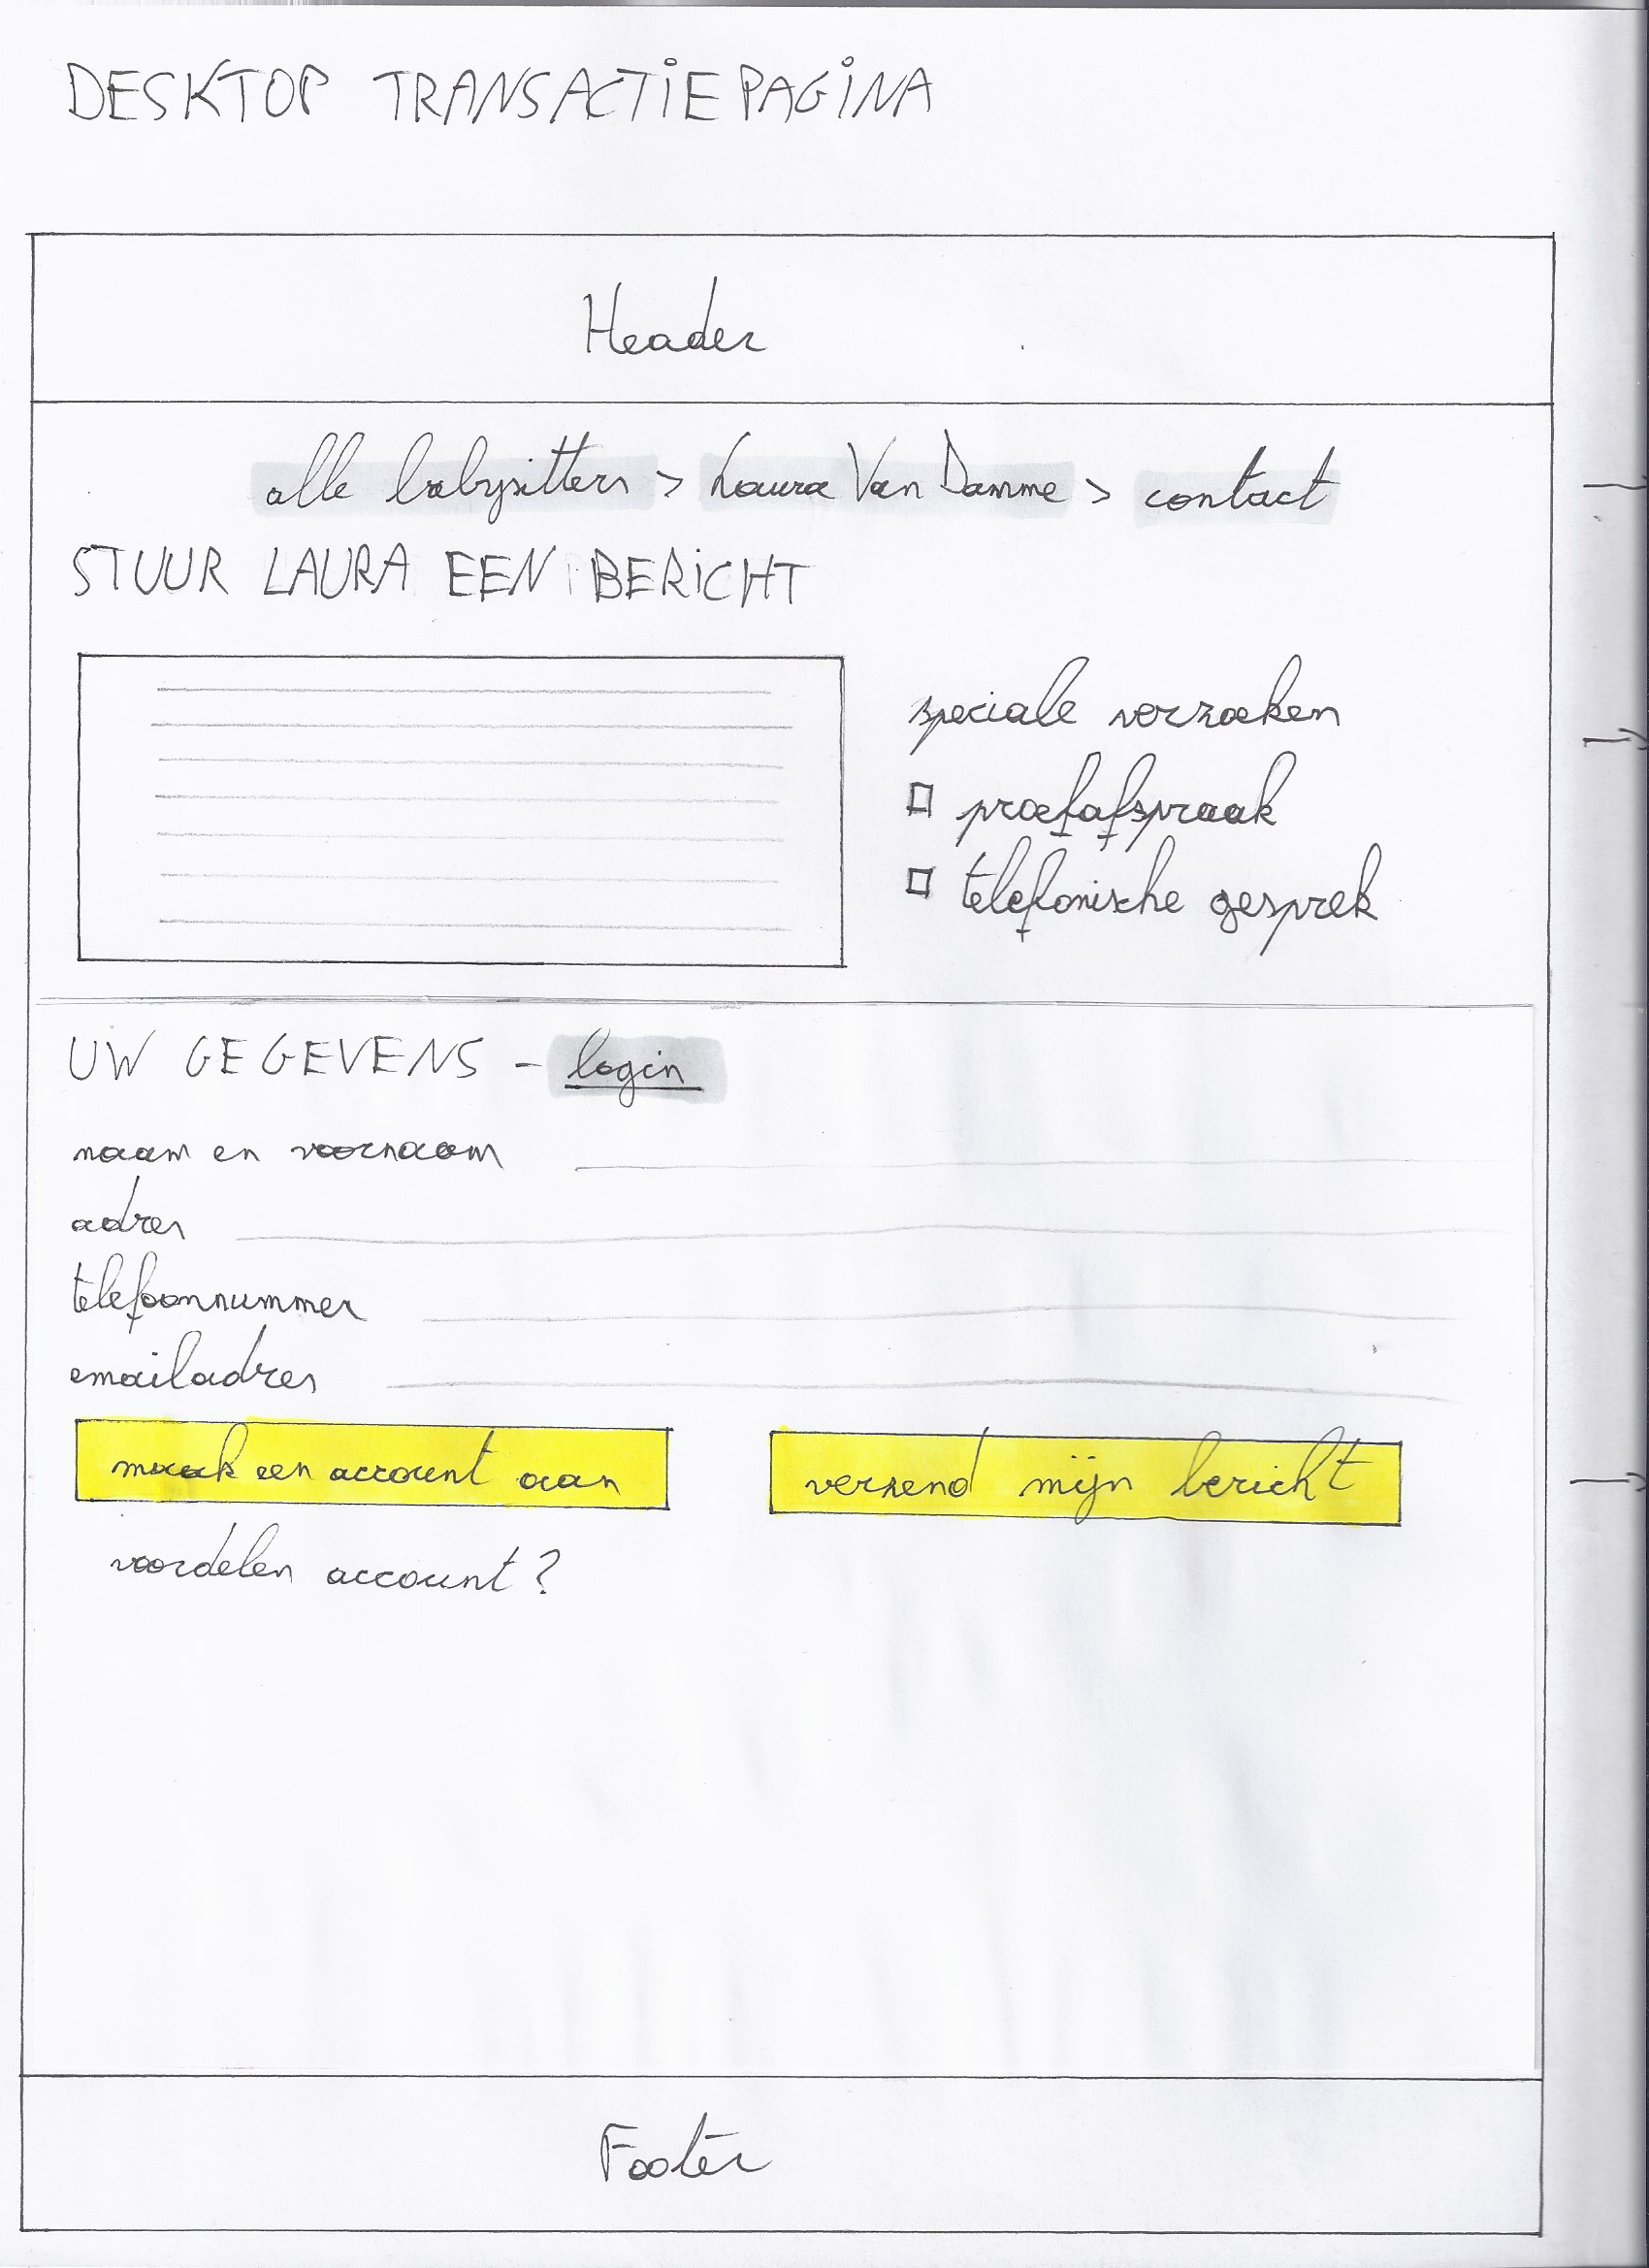 DESKTOP TRANSACTIEPAGINA
Header
alle babysitters > Laura Van Damme > contact
STUUR LAURA EEN BERICHT
speciale verzoeken
proefafspraak
telefonische gesprek
UW GEGEVENS - login
naam en voornaam
adres
telefoonnummer
emailadres
maak een account aan
verzend mijn bericht
voordelen account?
Footer